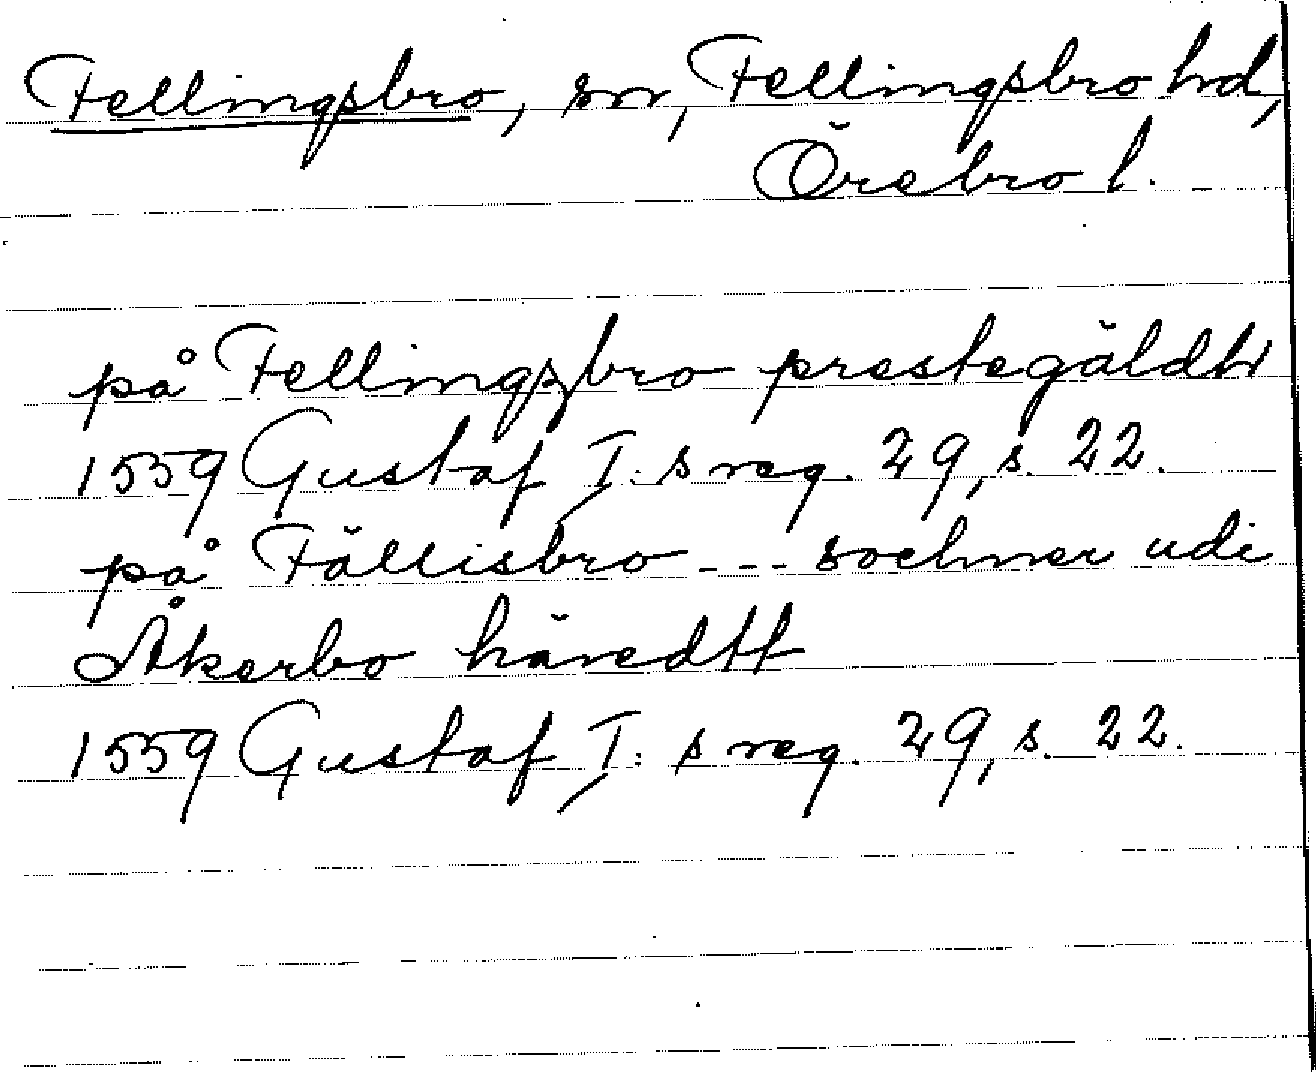 Fellingsbro, sn, Fellingsbro hd,
Örebro l.
på Fellingzbro prestegäldh
1559 Gustaf I:s reg. 29, s. 22.
på Fällisbro --- sochner udi
Åkerbo häredtt
1559 Gustaf I:s reg. 29, s. 22.